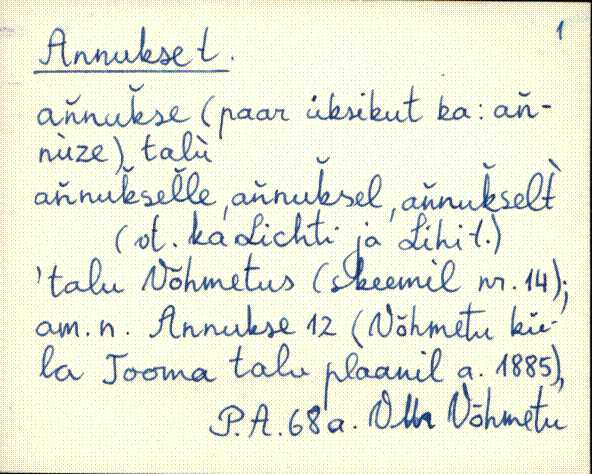 1
Annukse t.
aňnuǩse (paar üksikut ka: aň-
nùze) talù
aňnuǩseľle, aňnuǩsel, aňnuǩselt̀
(vt. ka Lichti ja Lihi t.)
'talu Võhmetus (skeemil nr. 14);
am. n. Annukse 12 (Võhmetu kü-
la Tooma talu plaanil a. 1885),
P.A. 68 a. VMr Võhmetu